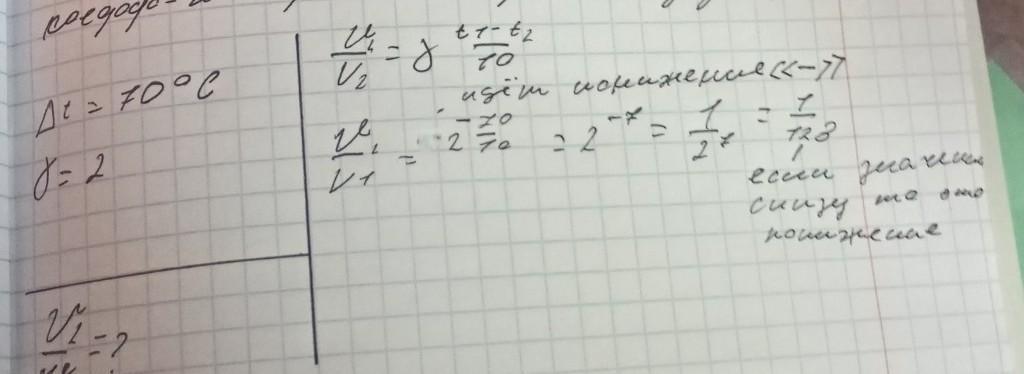 Δt = 70°C
γ = 2
V₂/V₁ = ?
V₁/V₂ = γ^((t1-t2)/10)
идёт понижение «-»
V₂/V1 = 2^(-70/10) = 2^(-7) = 1/2^7 = 1/128
если значение
снизу то это
понижение